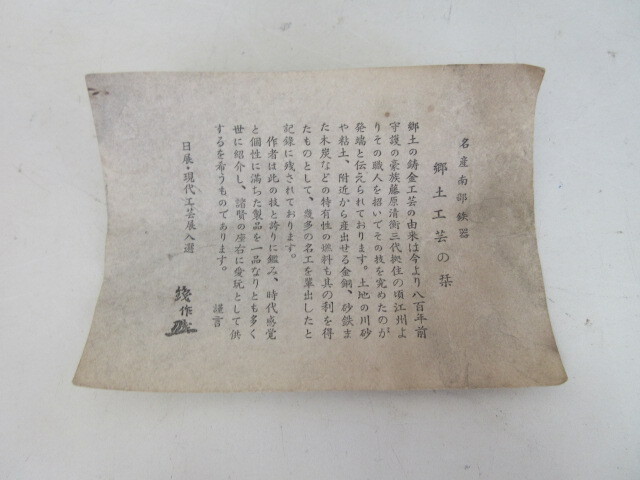 名産南部鉄器
郷土工芸の栞
郷土の鋳金工芸の由来は今より八百年前
守護の豪族藤原清衡三代拠住の頃江州よ
りその職人を招いてその技を究めたのが
発端と伝えられております。土地の川砂
や粘土、附近から産出せる金銅、砂鉄ま
た木炭などの特有性の燃料も其の利を得
たものとして、幾多の名工を輩出したと
記録に残されております。
作者は此の技と誇りに組み、時代感覚
と個性に満ちた製品を一品なりとも多く
世に紹介し、諸賢の座右に愛玩として供
するを希うものであります。
謹言
日展・現代工芸展入選
作